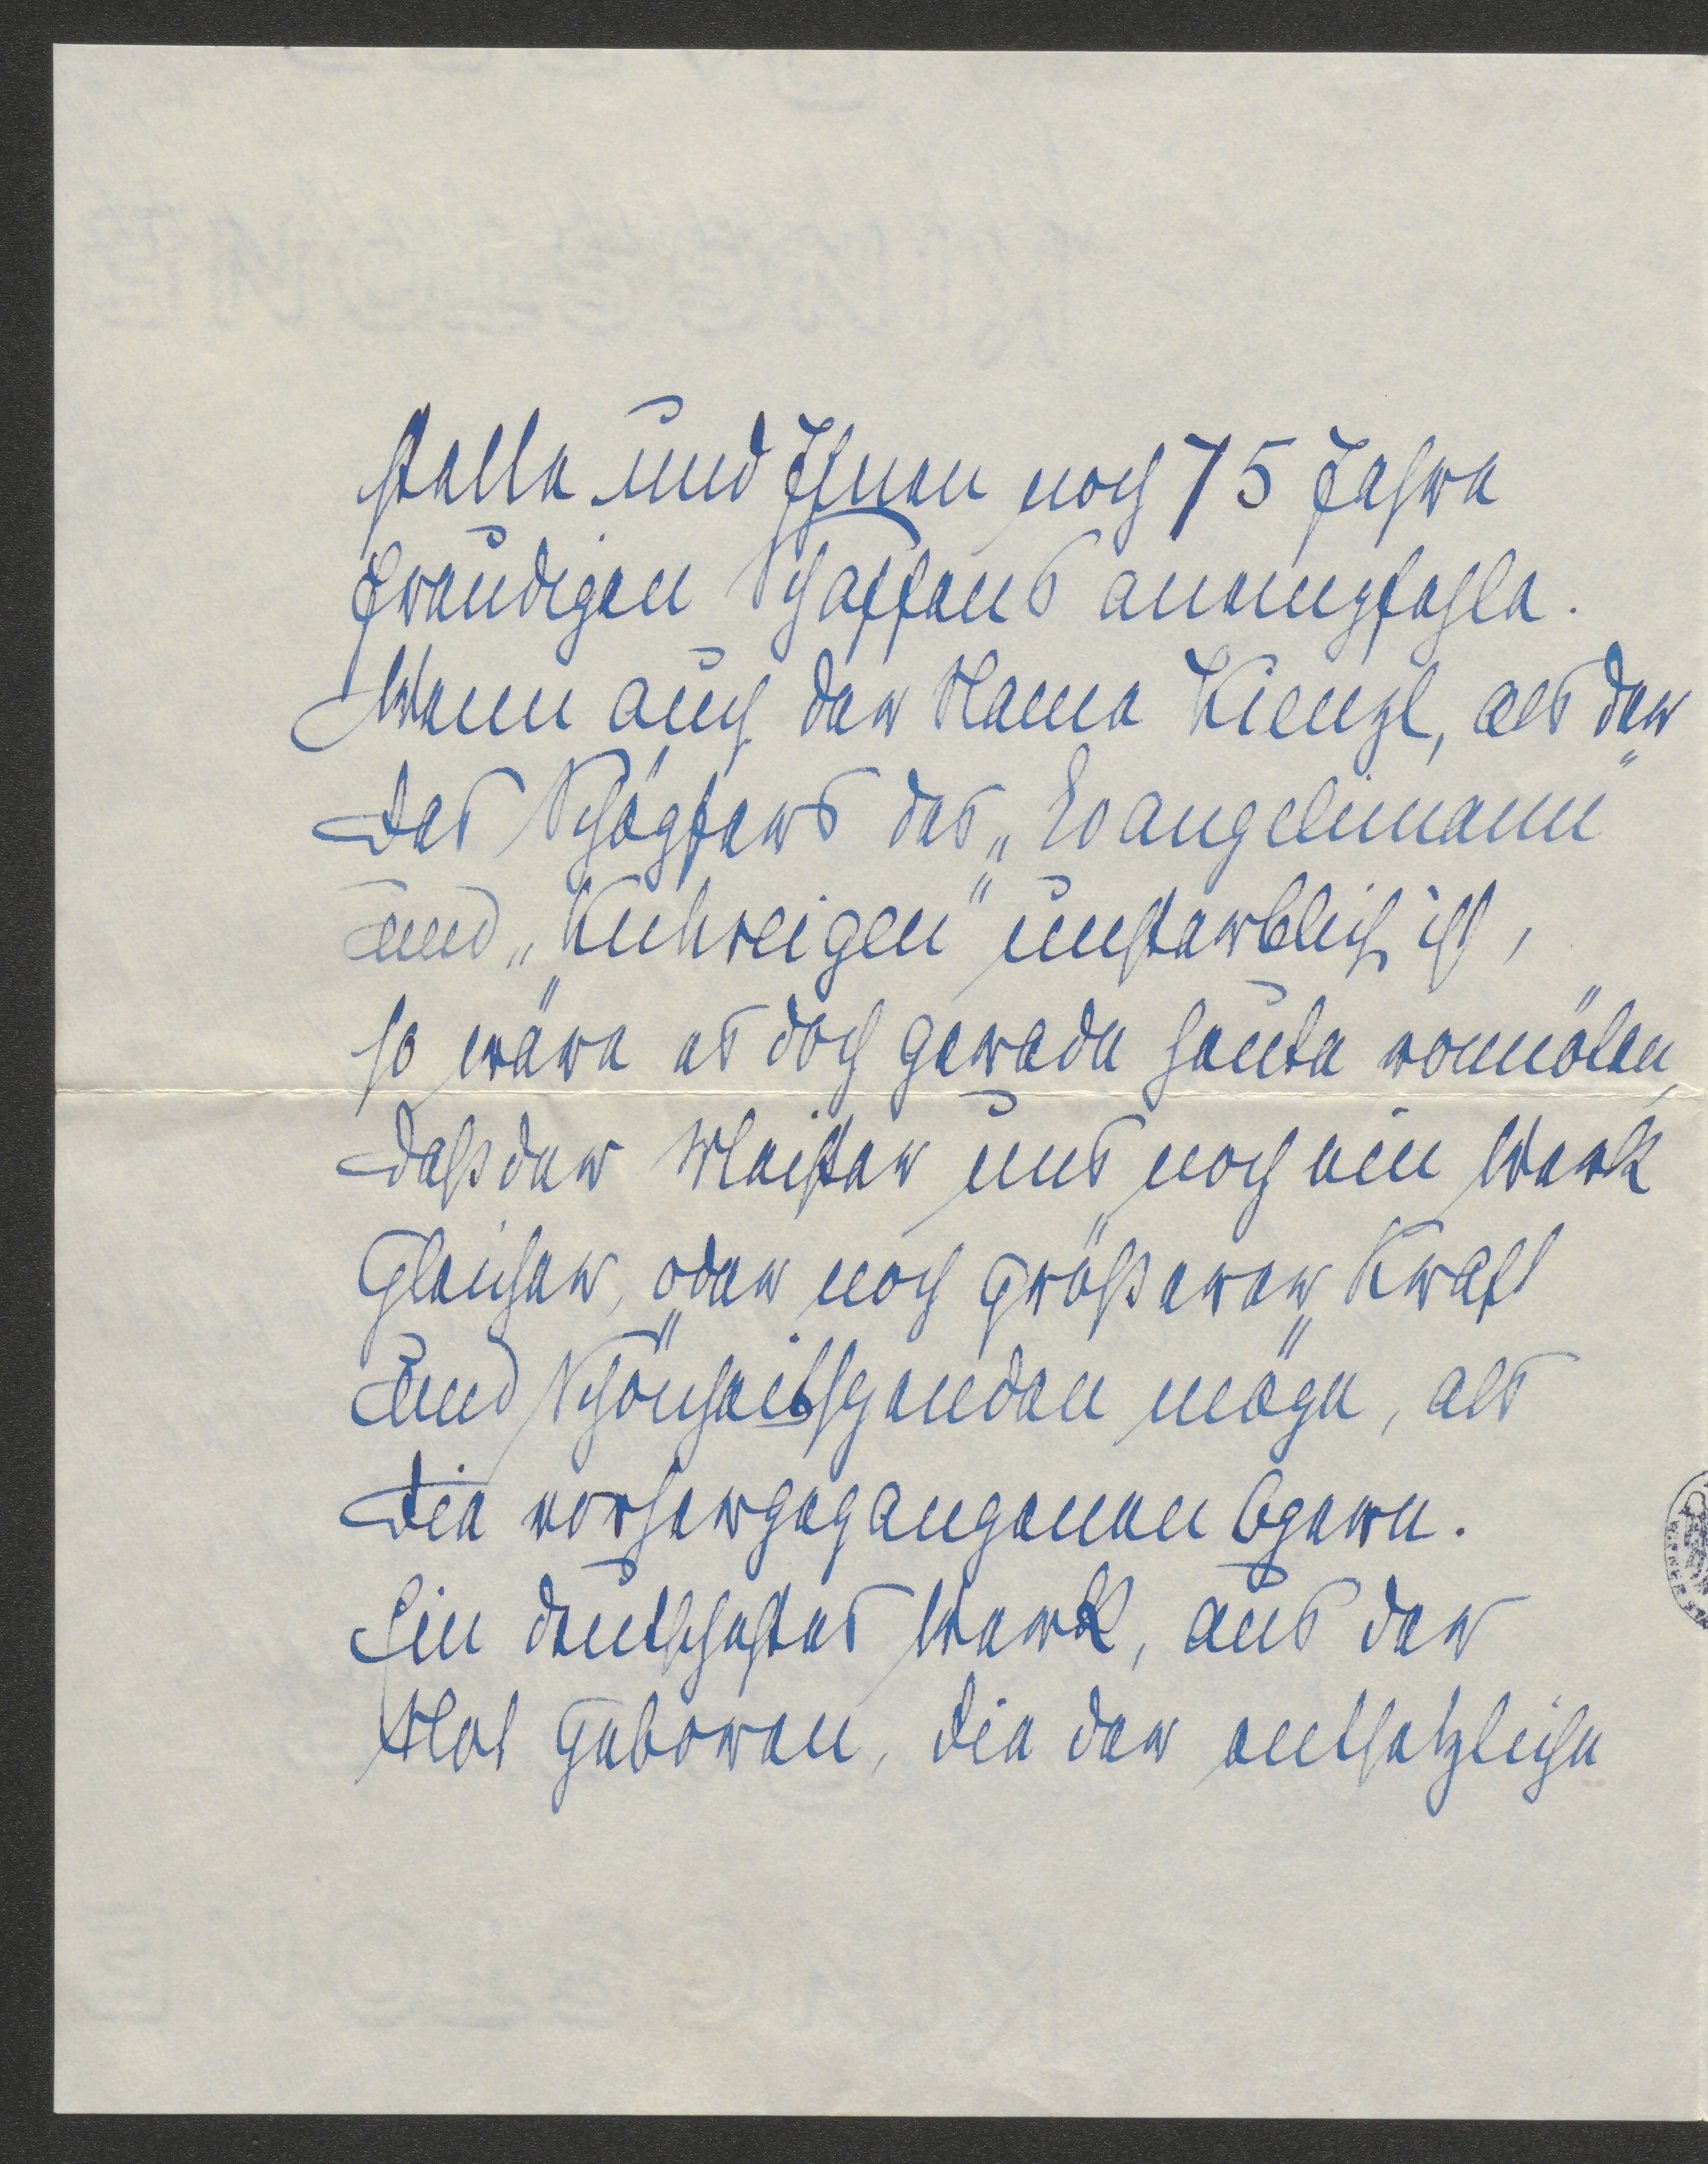 stelle und Ihnen noch 75 Jahre
freudigen Schaffens anempfehle.
Wenn auch der Name Kienzl, als der
des Schöpfers des „Evangelimann“
und „Kuhreigen“ unsterblich ist,
so wäre es doch gerade heute vonnöten,
daß der Meister uns noch ein Werk
gleicher, oder noch größerer Kraft
und Schönheit spenden möge, als
die vorhergegangenen Opern.
Ein deutschestes Werk, aus der
Not geboren, die der entsetzliche